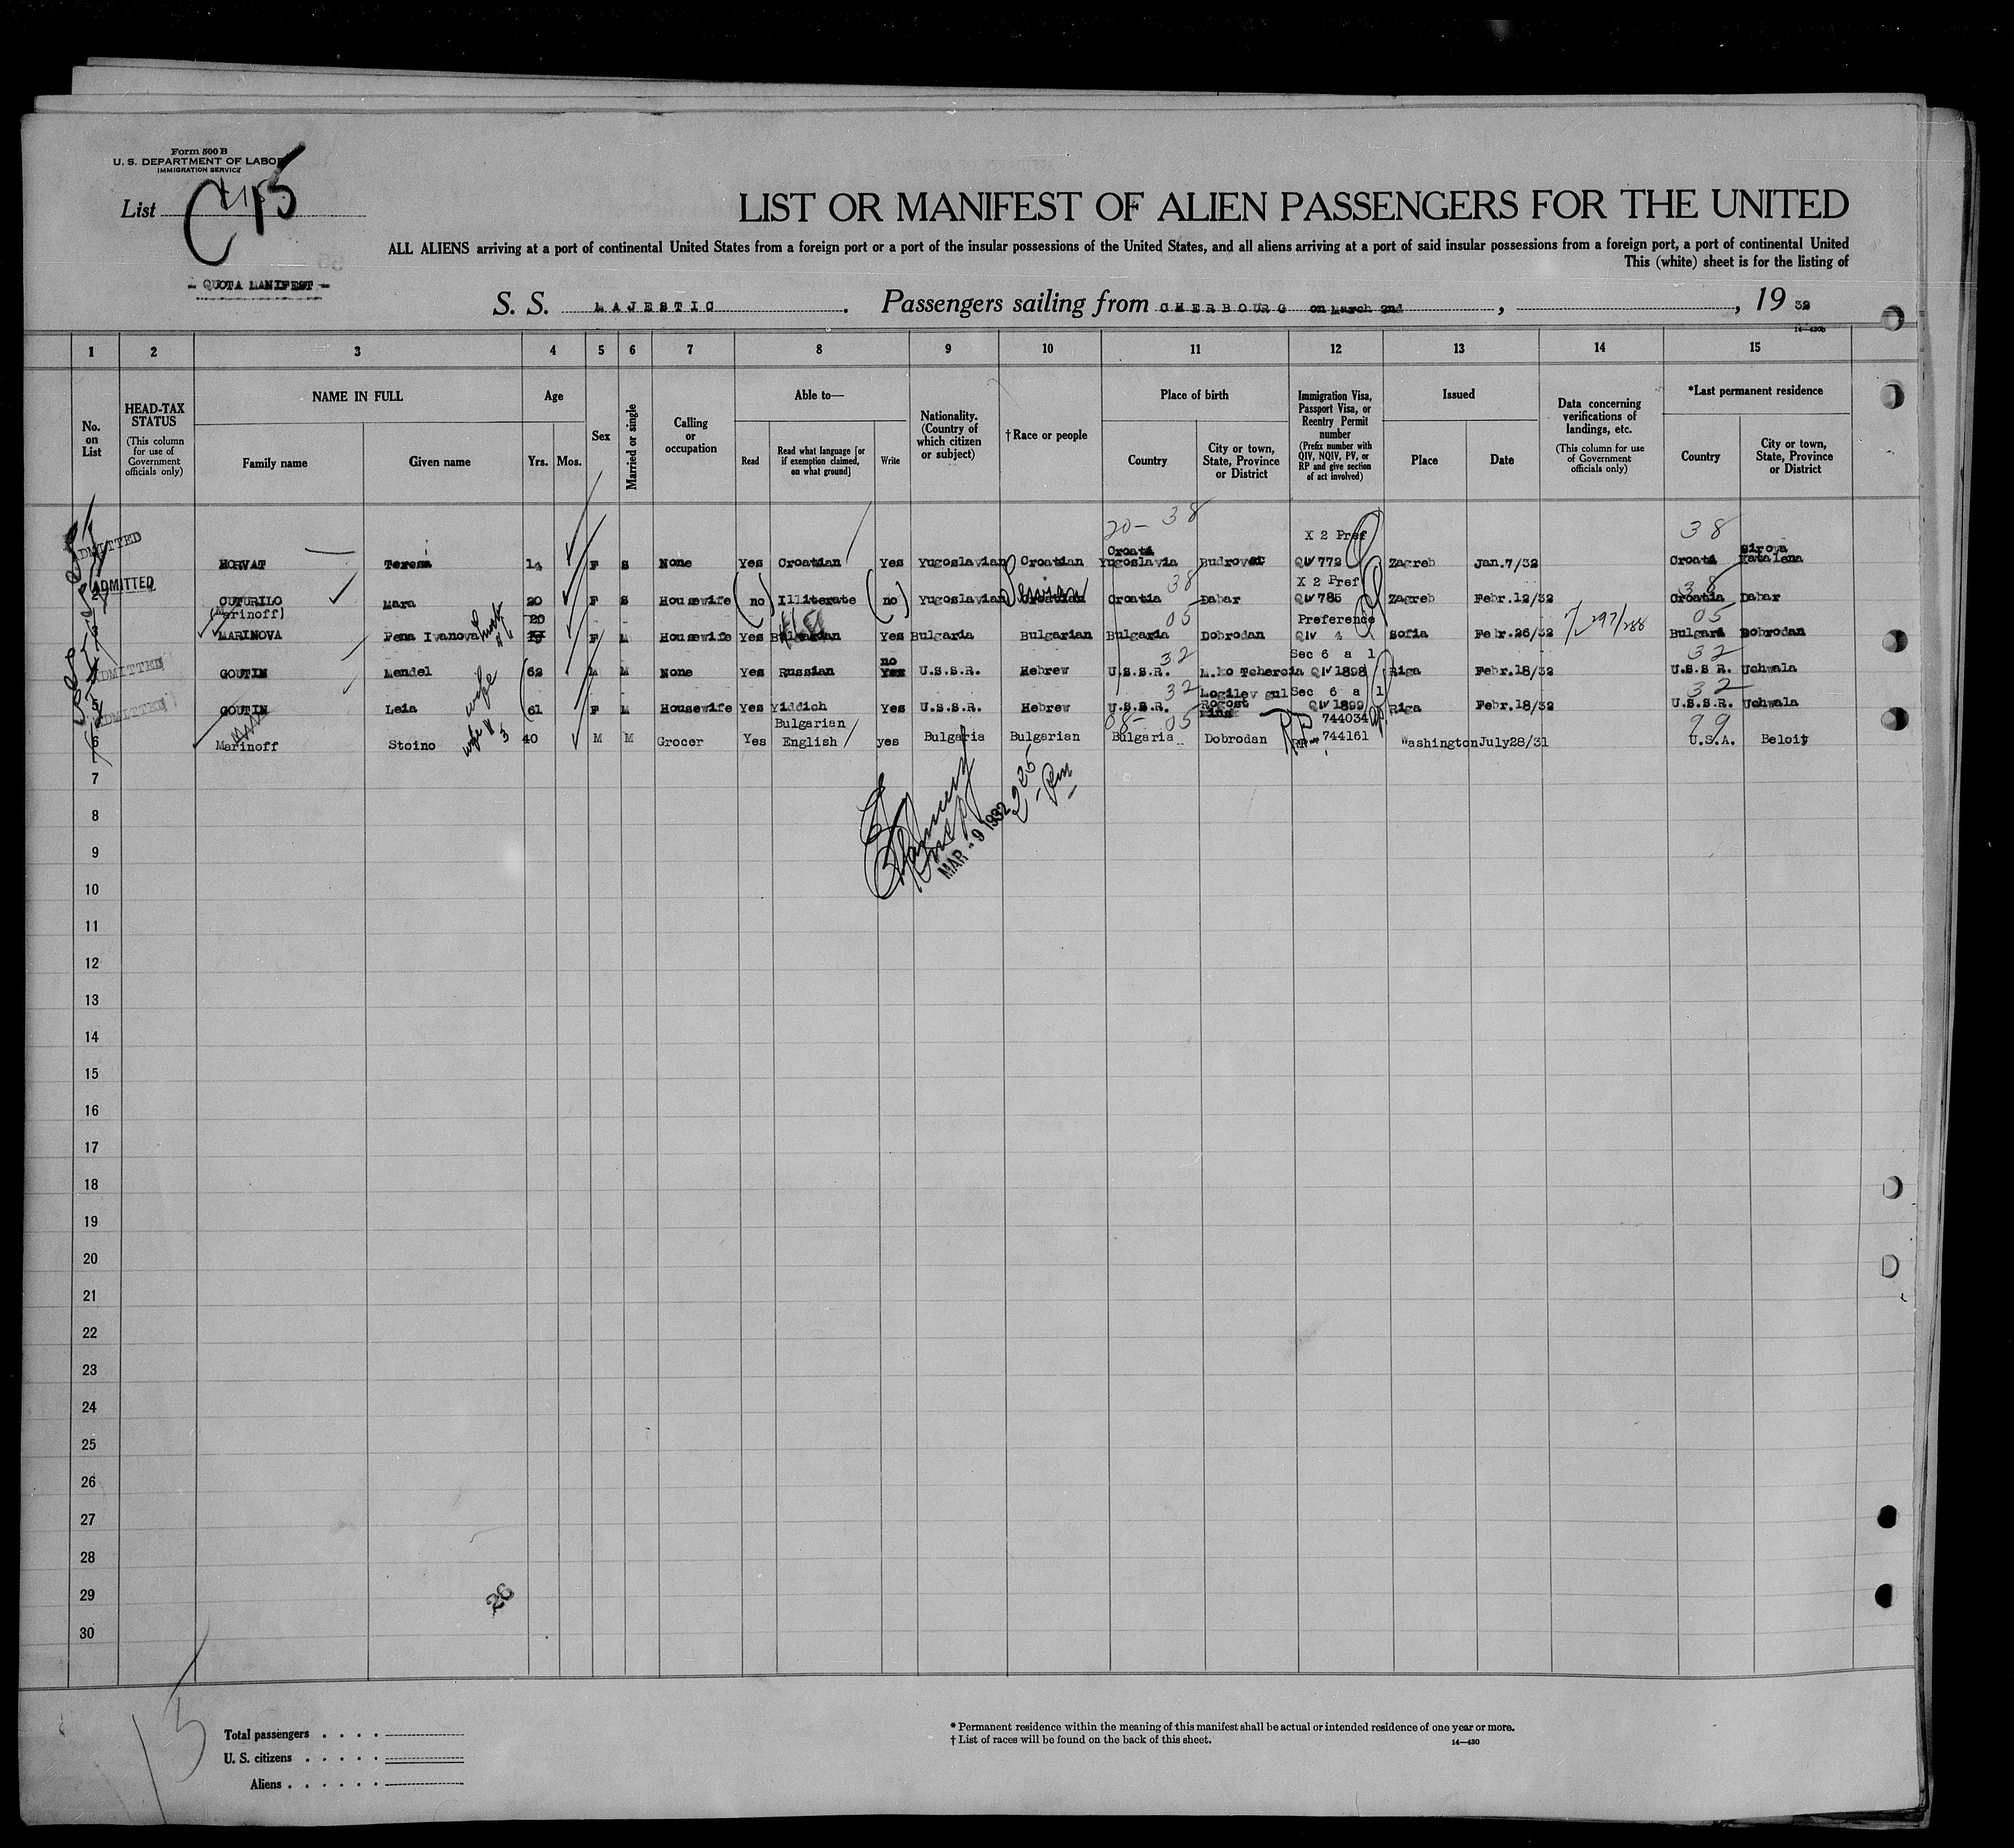 Form 500 B
U. S. DEPARTMENT OF LABOR
IMMIGRATION SERVICE
List
- QUOTA MANIFEST -
LIST OR MANIFEST OF ALIEN PASSENGERS FOR THE UNITED
ALL ALIENS arriving at a port of continental United States from a foreign port or a port of the insular possessions of the United States, and all aliens arriving at a port of said insular possessions from a foreign port, a port of continental United
This (white) sheet is for the listing of
S. S. MAJESTIC. Passengers sailing from CHERBOURG on March 2nd, , 19 32
14—430b
1 2 3 4 5 6 7 8 9 10 11 12 13 14 15
No. on List
HEAD-TAX STATUS (This column for use of Government officials only)
NAME IN FULL
Family name Given name
Age
Yrs. Mos.
Sex
Married or single
Calling or occupation
Able to—
Read Read what language [or if exemption claimed, on what ground] Write
Nationality. (Country of which citizen or subject)
† Race or people
Place of birth
Country City or town, State, Province or District
Immigration Visa, Passport Visa, or Reentry Permit number (Prefix number with QIV, NQIV, PV, or RP and give section of act involved)
Issued
Place Date
Data concerning verifications of landings, etc. (This column for use of Government officials only)
*Last permanent residence
Country City or town, State, Province or District
20- 38 X 2 Pref 38
ADMITTED HORVAT Teresa 14 F S None Yes Croatian Yes Yugoslavian Croatian Croati Yugoslavia Budrovac QIV 772 Zagreb Jan.7/32 Croati Sirova Katalena
38 X 2 Pref 38
ADMITTED 2 CUTURILO Mara 20 F S Housewife (no) Illiterate (no) Yugoslavian Croatian Croatia Dabar QIV 785 Zagreb Febr.12/32 Croatia Dabar
(Marinoff) 20 05 Preference 05
3 MARINOVA Pena Ivanova F M Housewife Yes Bulgarian Yes Bulgaria Bulgarian Bulgaria Dobrodan QIV 4 Sofia Febr.26/32 297/288 Bulgari Dobrodan
no 32 Sec 6 a 1 32
ADMITTED 4 GOUTIN Mendel 62 M M None Yes Russian Yes U.S.S.R. Hebrew U.S.S.R. QIV 1898 Riga Febr.18/32 U.S.S R. Uchwala
wife 32 Sec 6 a 1 32
ADMITTED 5 GOUTIN Leia 61 F M Housewife Yes Yiddich Yes U.S.S.R. Hebrew U.S.S.R. Rogost QIV 1899 Riga Febr.18/32 U.S.S.R. Uchwala
Bulgarian 08- 05 744034 99
6 Marinoff Stoino wife # 3 40 M M Grocer Yes English yes Bulgaria Bulgarian Bulgaria Dobrodan RP 744161 Washington July28/31 U.S.A. Beloit
7
225 Pm
MAR - 9 1932
8
9
10
11
12
13
14
15
16
17
18
19
20
21
22
23
24
25
26
27
28
29
26
30
Total passengers . . . .
U. S. citizens . . . . .
Aliens . . . . . .
* Permanent residence within the meaning of this manifest shall be actual or intended residence of one year or more.
† List of races will be found on the back of this sheet.
14—430